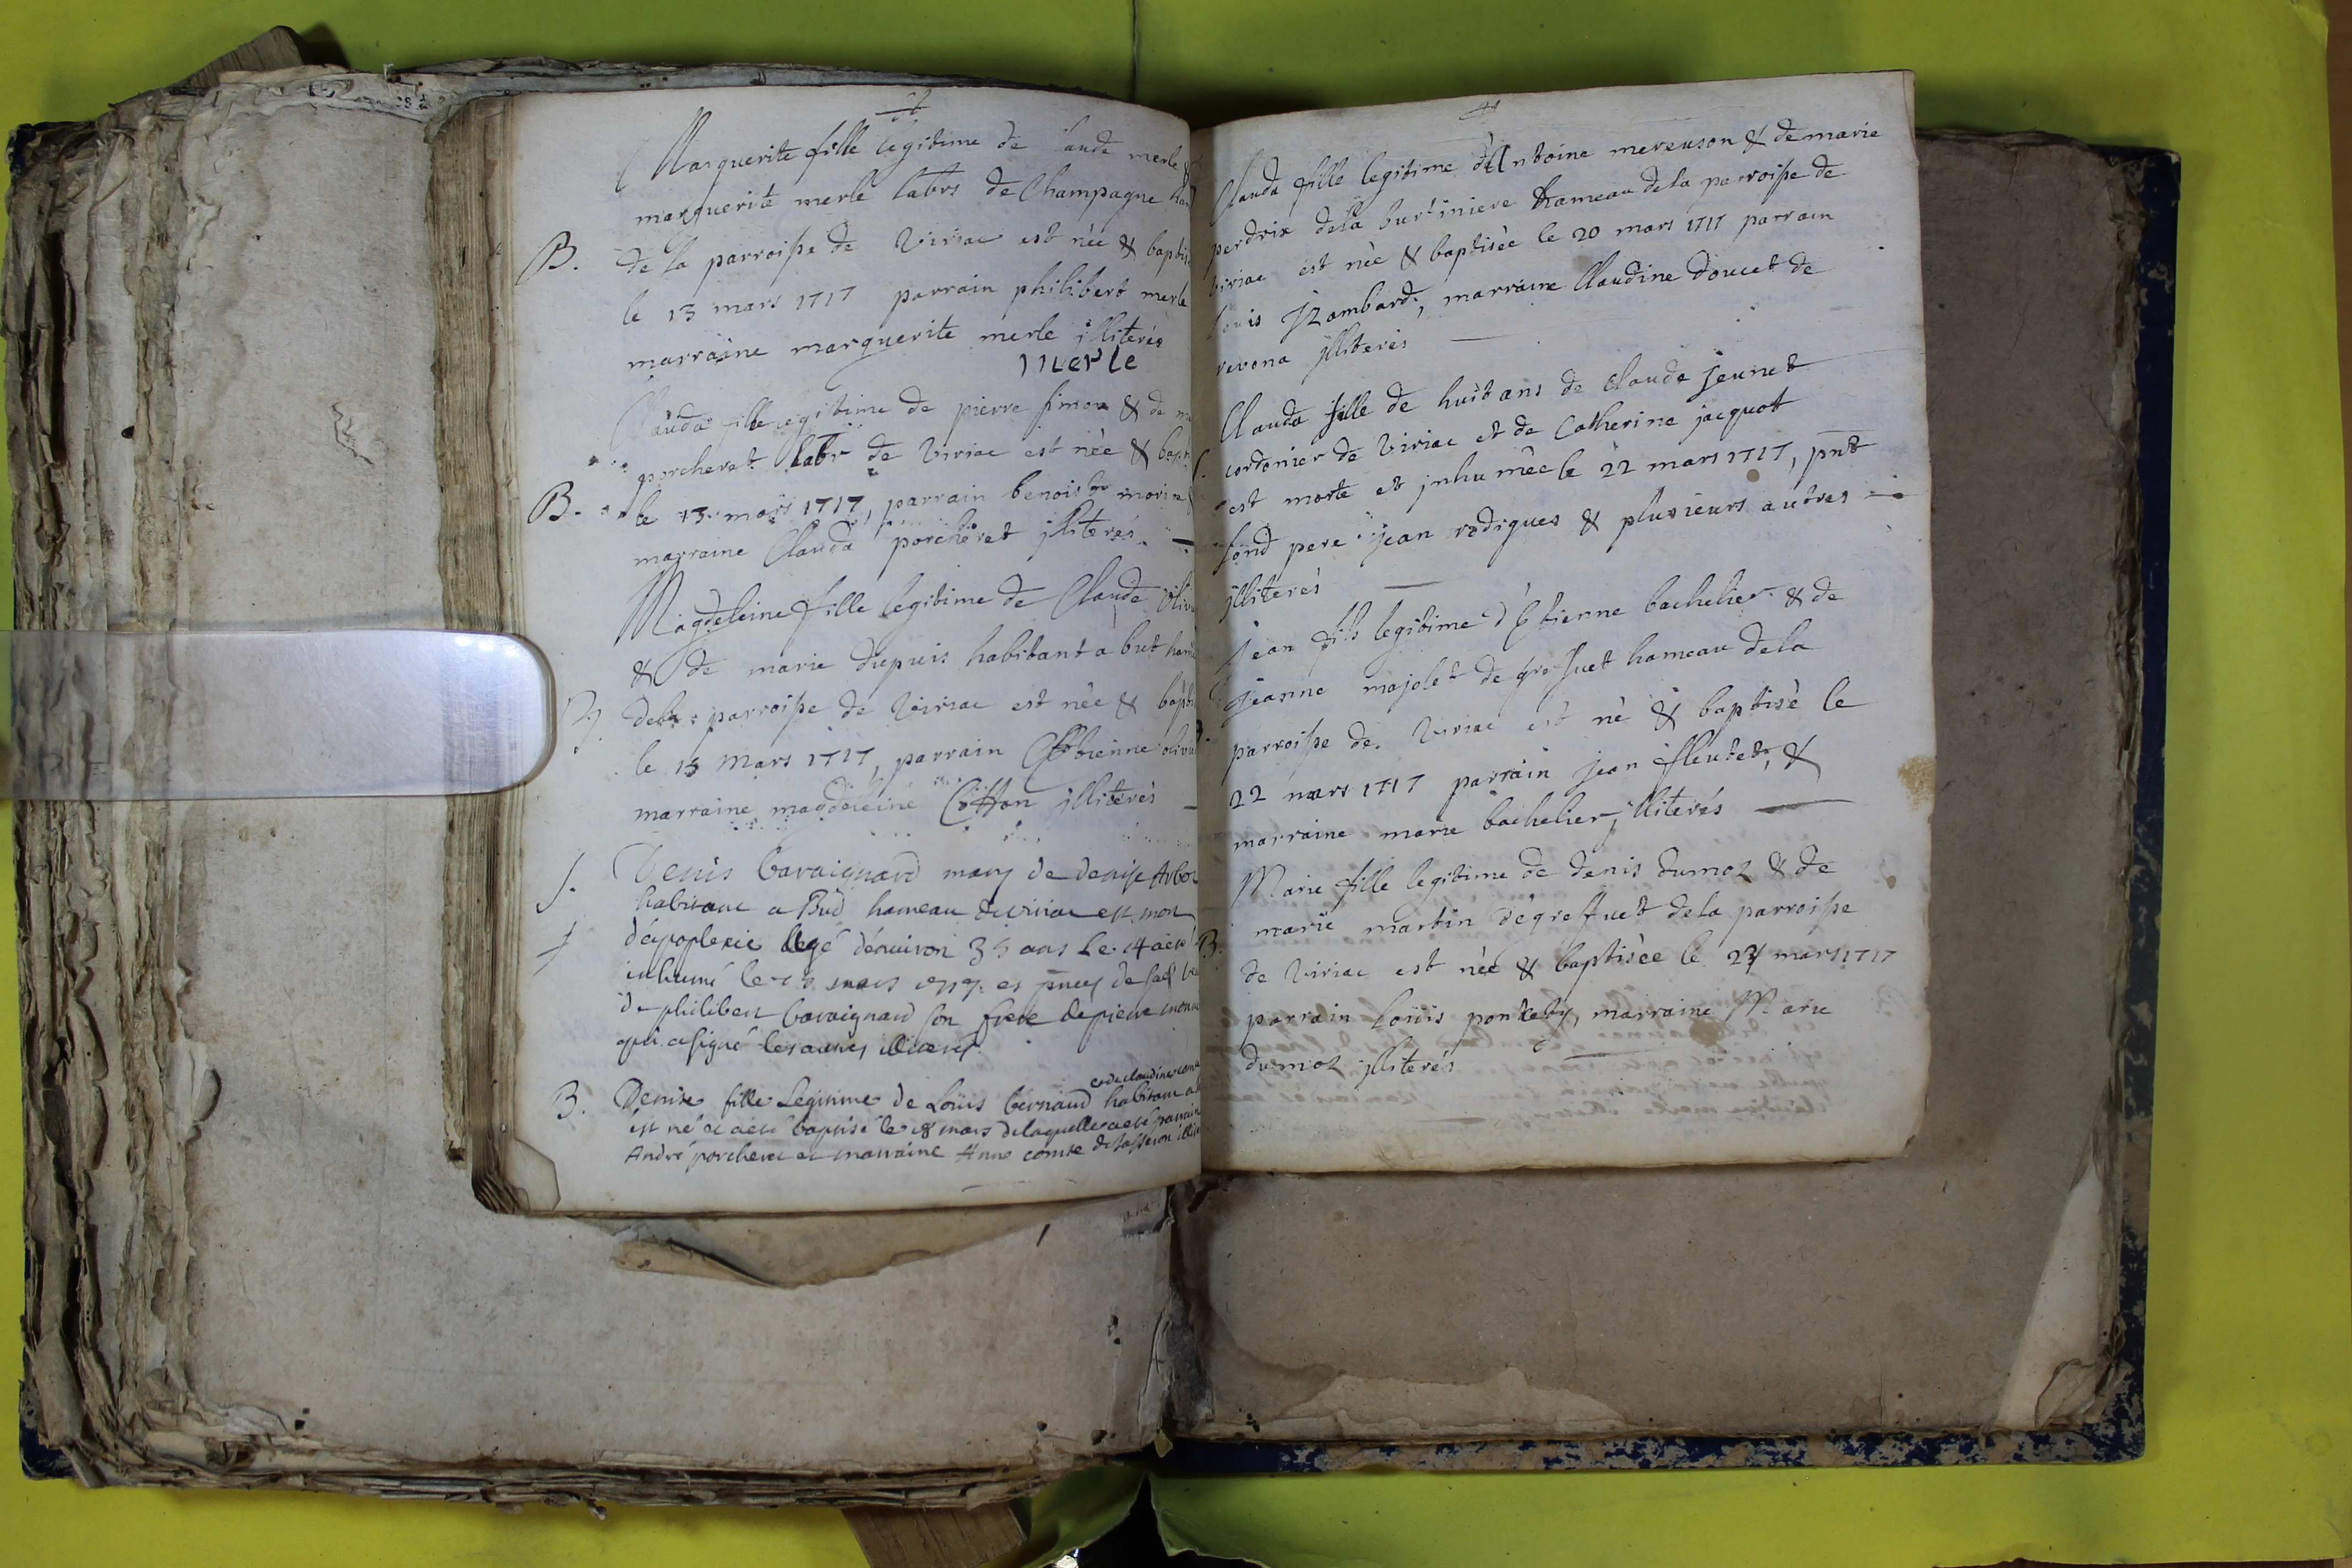 Marguerite fille legitime de Claude merle &
marguerite merle labrs de Champagne ham
B. de la parroisse de Viriac est née & baptis
le 13 mars 1717 parrain philibert merle
marraine marguerite merle illiterés
merle
Clauda fille legitime de pierre simon & de
porcheret labr de Viriac est née & bapt
B. le 13 mars 1717, parrain benoist morin
marraine Clauda porcheret jlliterés
Magdeleine fille legitime de Claude Oliv
& de marie dupuis habitant a but ham
B. dela parroisse de Viriac est née & bapti
le 13 mars 1717, parrain Estienne oliv
marraine magdeleine Cotton jlliterés
Denis Cavaignard mary de denise Arbo
habitant a Bud hameau de viriac est mor
d'apoplexie agé d'environ 35 ans le 14 a été
inhumé le mars 1717 es pnces de
de philibert Cavaignard son frere de pierre
qui a signé les autres illiterés
et de claudine
B. Denise fille Legitime de Loüis bernaud habitant a
est né et a eté baptisé le 18 mars de laquelle a eté parrain
André porcheret et marraine Anne comte de
Clauda fille legitime d'Antoine mereuson & de marie
perdrix dela burtiniere hameau dela parroisse de
viriac est née & baptisée le 20 mars 1717 parrain
louis jzombard, marraine Claudine doucet de
revona jlliterés
Clauda fille de huit ans de claude jeunet
cordonier de Viriac et de Catherine jacquot
est morte et jnhumée le 22 mars 1717, pnt
sond pere jean rodigues & plusieurs autres
jlliterés
jean fils legitime d'Etienne bachelier & de
jeanne majolet de greffuet hameau dela
parroisse de Viriac est né & baptisé le
22 mars 1717 parrain jean fleutet, &
marraine marie bachelier jlliterés
Marie fille legitime de denis dumoz & de
marie martin de greffuet dela parroisse
B. de Viriac est née & baptisée le 24 mars 1717
parrain Loüis pontety, marraine Marie
dumoz jlliterés